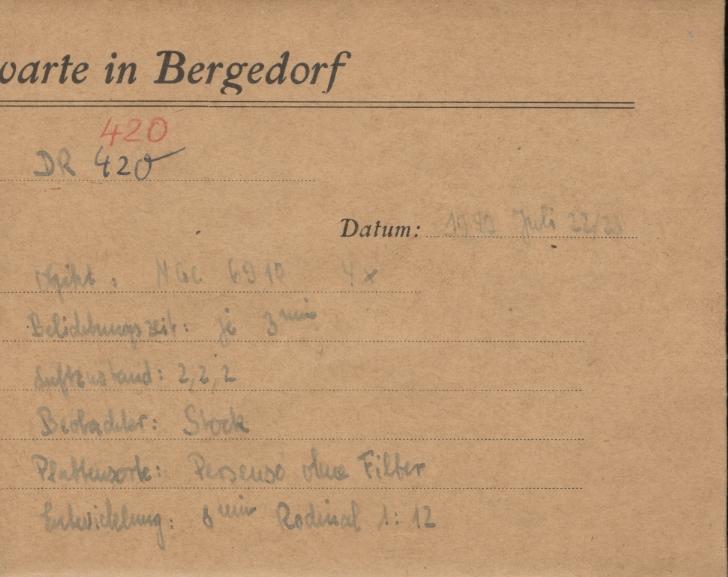 warte in Bergedorf
420
DR 420
Datum: Juli 22/23
Objekt: NGC 6910 4x
Belichtungszeit: je 3 min
Luftzustand: 2, 2, 2
Beobachter: Stock
Plattensorte: Persenso ohne Filter
Entwicklung: 8 min Rodinal 1:12